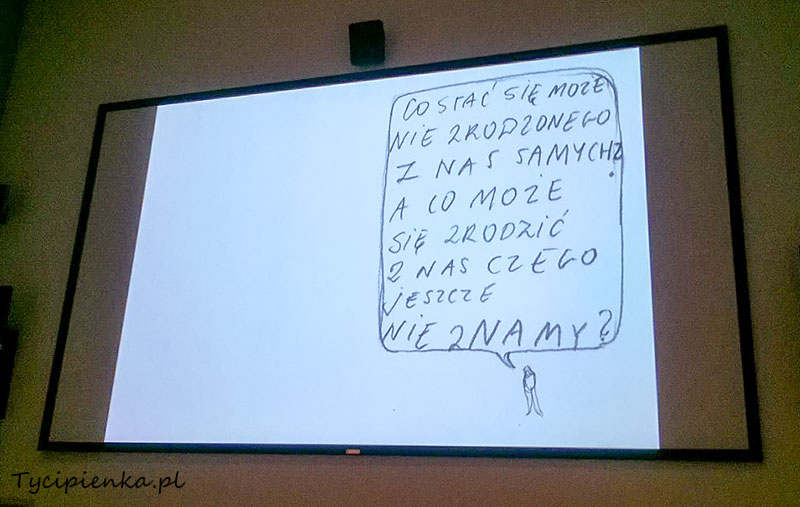 CO STAĆ SIĘ MOŻE
NIE ZRODZONEGO
Z NAS SAMYCH?
A CO MOŻE
SIĘ ZRODZIĆ
Z NAS CZEGO
JESZCZE
NIE ZNAMY?
Tycipienka.pl